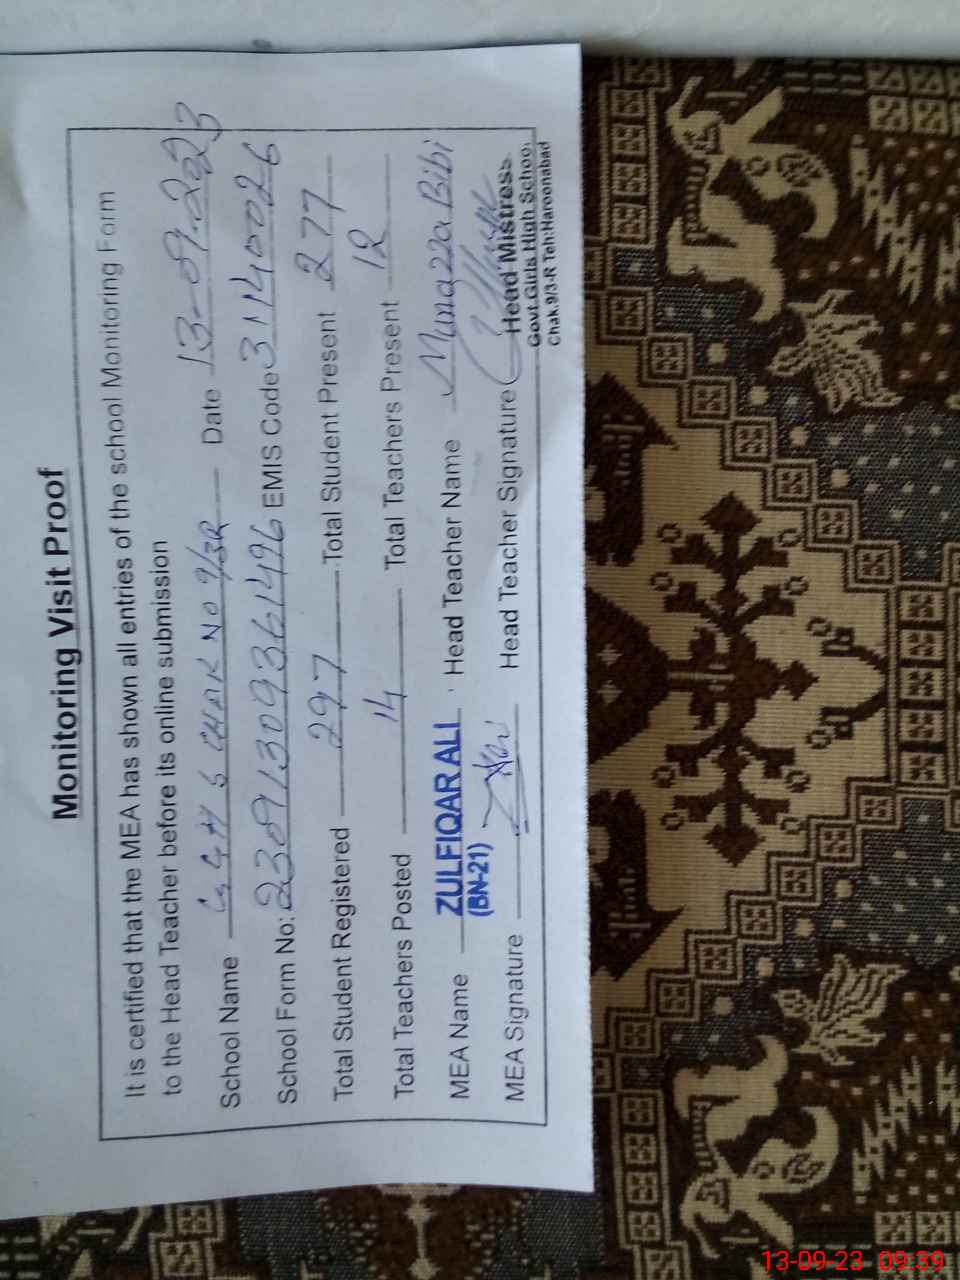 Monitoring Visit Proof
It is certified that the MEA has shown all entries of the school Monitoring Form
to the Head Teacher before its online submission
School Name GGHS CHAK NO 9/3R Date 13-09-2023
School Form No: 23091309361496 EMIS Code 31140026
Total Student Registered 297 Total Student Present 277
Total Teachers Posted 14 Total Teachers Present 12
MEA Name ZULFIQAR ALI Head Teacher Name Munazza Bibi
(BN-21)
MEA Signature Head Teacher Signature
Head Mistress
Govt.Girls High School
Chak.9/3-R Teh:Haroonabad
13-09-23 09:39